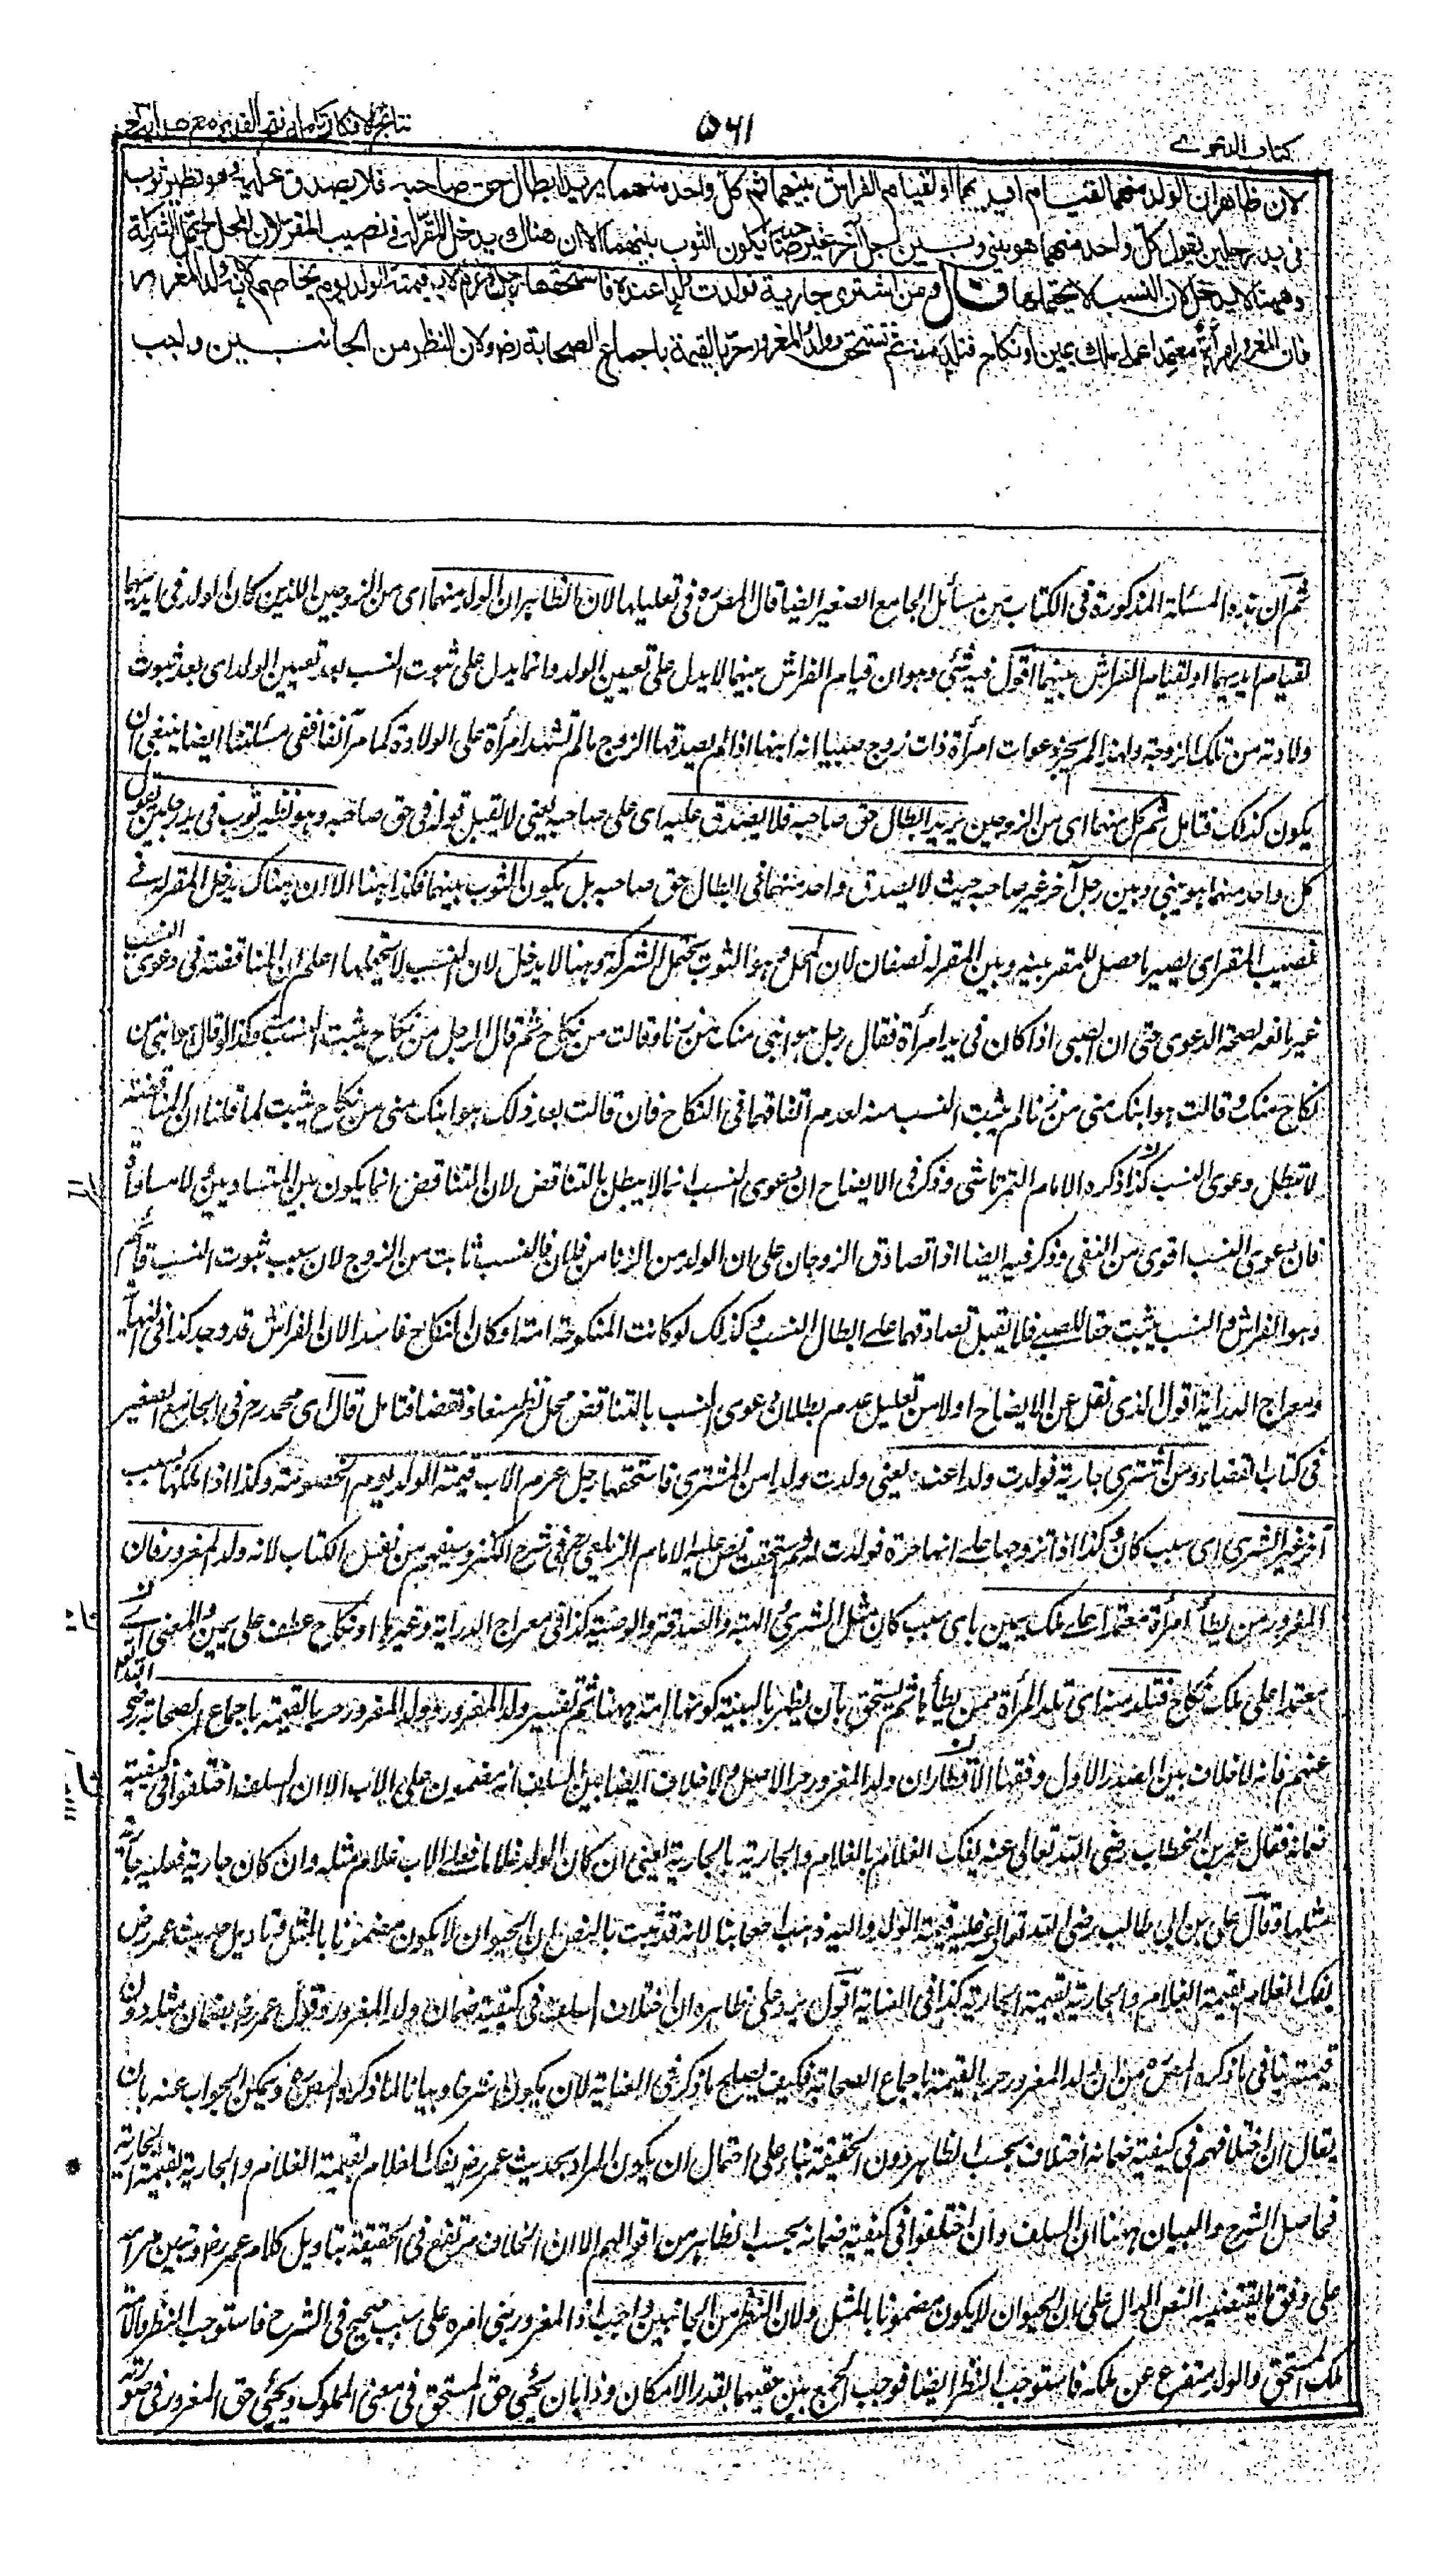 كتاب الدعوے
٥٦١
نتائج الافكار تكملة فتح القدير مع هداية ج
لان ظاهران الولد منهما لقيام ايديهما او لقيام الفراش بينهما ثم كل واحد منهما يريد ابطال حق صاحبه فلا يصدق عليه وهو نظير ثوب
في يد رجلين يقول كل واحد منهما هو بيني وبين رجل آخر غير صاحبه يكون الثوب بينهما الا ان هناك يدخل المقر له في نصيب المقر لان المحل يحتمل الشركة
وههنا لا يدخل لان النسب لا يحتملها قال ومن اشترى جارية فولدت ولدا عنده فاستحقها رجل غرم الاب قيمة الولد يوم يخاصم لانه ولد المغرور
فان المغرور امرأة معتمدا على ملك يمين او نكاح فتلد منه ثم تستحق وولد المغرور حر بالقيمة باجماع الصحابة رض ولان النظر من الجانبين واجب
ثم ان هذه المسئلة المذكورة في الكتاب من مسائل الجامع الصغير ايضا قال المص ره في تعليلها لان الظاهر ان الولد منهما اى من الزوجين اللذين كان الولد في ايديهما
لقيام ايديهما او لقيام الفراش بينهما اقول فيه شئ وهو ان قيام الفراش بينهما لا يدل على تعيين الولد وانما يدل على ثبوت النسب بعد تعيين الولد اى بعد ثبوت
ولادته من تلك الزوجة ولهذا لم يجز دعوات امرأة ذات زوج صبيا انه ابنها اذا لم يصدقها الزوج ما لم تشهد امرأة على الولادة كما مر آنفا ففي مسئلتنا ايضا ينبغي ان
يكون كذلك فتأمل ثم كل منهما اى من الزوجين يريد ابطال حق صاحبه فلا يصدق عليه اى على صاحبه يعني لا يقبل قوله في حق صاحبه وهو نظير ثوب في يد رجلين يقول
كل واحد منهما هو بيني وبين رجل آخر غير صاحبه حيث لا يصدق واحد منهما في ابطال حق صاحبه بل يكون الثوب بينهما فكذا ههنا الا ان هناك يدخل المقر له في
نصيب المقر اى يصير ما حصل للمقر بينه وبين المقر له نصفان لان المحل وهو الثوب يحتمل الشركة وههنا لا يدخل لان النسب لا يحتملها اعلم ان المناقضة في دعوى النسب
غير مانعة لصحة الدعوى حتى ان الصبي اذا كان في يد امرأة فقال رجل هو ابني منك من زنا وقالت من نكاح ثم قال الرجل من نكاح يثبت النسب وكذا لو قال هو ابني من
نكاح منك وقالت هو ابنك مني من زنا لم يثبت النسب منه لعدم اتفاقهما في النكاح فان قالت بعد ذلك هو ابنك مني من نكاح يثبت لما قلنا ان المناقضة
لا تبطل دعوى النسب كذا ذكره الامام التمرتاشي وذكر في الايضاح ان دعوى النسب انما لا يبطل بالتناقض لان التناقض انما يكون بين المتساويين ولا مساواة
فان دعوى النسب اقوى من النفي وذكر فيه ايضا اذا تصادق الزوجان على ان الولد من الزنا من فلان فالنسب ثابت من الزوج لان سبب ثبوت النسب قائم
وهو الفراش والنسب يثبت حقا للصبي فلا يقبل تصادقهما على ابطال النسب وكذلك لو كانت المنكوحة امة او كان النكاح فاسدا لان الفراش قد وجد كذا في النهاية
ومعراج الدراية اقول الذي نقل عن الايضاح اولا من تعليل عدم بطلان دعوى النسب بالتناقض محل نظر سعاد نقضا فتأمل قال اى محمد رح في الجامع الصغير
في كتاب القضاء ومن اشترى جارية فولدت ولدا عنده يعني ولدت ولدا من المشترى فاستحقها رجل غرم الاب قيمة الولد يوم الخصومة وكذا اذا ملكها بسبب
آخر غير الشرى اى سبب كان وكذا اذا تزوجها على انها حرة فولدت له ثم استحقت نص عليه الامام الزيلعي رح في شرح الكنز وسيفهم من نفس الكتاب لانه ولد المغرور فان
المغرور من يطأ امرأة معتمدا على ملك يمين باى سبب كان مثل الشرى والهبة والصدقة والوصية كذا في معراج الدراية وغيرها او نكاح عطف على يمين والمعنى
معتمدا على ملك نكاح فتلد منه اى تلد المرأة ممن يطأها ثم يستحق بان يظهر بالبينة كونها امة وههنا تم تفسير ولد المغرور وولد المغرور حر بالقيمة باجماع الصحابة رضي
عنهم فانه لا خلاف بين الصدر الاول وفقهاء الامصار ان ولد المغرور حر الاصل ولا خلاف ايضا بين السلف انه مضمون على الاب الا ان السلف اختلفوا في كيفية
ضمانه فقال عمر بن الخطاب رضي الله تعالى عنه يفك الغلام بالغلام والجارية بالجارية يعني ان كان الولد غلاما فعلى الاب غلام مثله وان كان جارية فعليه جارية
مثلها وقال على بن ابي طالب رضي الله تعالى عنه عليه قيمة الولد واليه ذهب اصحابنا لانه قد ثبت بالنص ان الحيوان لا يكون مضمونا بالمثل وتاويل حديث عمر رض
يفك الغلام بقيمة الغلام والجارية بقيمة الجارية كذا في العناية اقول يرد على ظاهره ان اختلاف السلف في كيفية ضمان ولد المغرور وقول عمر رض بضمان مثله دون
قيمته ينافي ما ذكره المص ره من ان ولد المغرور حر بالقيمة باجماع الصحابة فكيف يصلح ما ذكر في العناية لان يكون شرحا وبيانا لما ذكره المص ره ويمكن الجواب عنه بان
يقال ان اختلافهم في كيفية ضمانه اختلاف بحسب الظاهر دون الحقيقة بناء على احتمال ان يكون المراد بحديث عمر رض يفك الغلام بقيمة الغلام والجارية بقيمة الجارية
فحاصل الشرح والبيان ههنا ان السلف وان اختلفوا في كيفية ضمانه بحسب الظاهر من اقوالهم الا ان الخلاف مرتفع في الحقيقة بتاويل كلام عمر رض وتبيين مراده
على وفق ما يقتضيه النص الدال على ان الحيوان لا يكون مضمونا بالمثل ولان النظر من الجانبين واجب اذ المغرور بنى امره على سبب صحيح في الشرح فاستوجب النظر والامة
ملك المستحق والولد متفرع عن ملكه فاستوجب النظر ايضا فوجب الجمع بين حقيهما بقدر الامكان وذا بان يحيى حق المستحق في معنى المملوك ويحيى حق المغرور في صورة